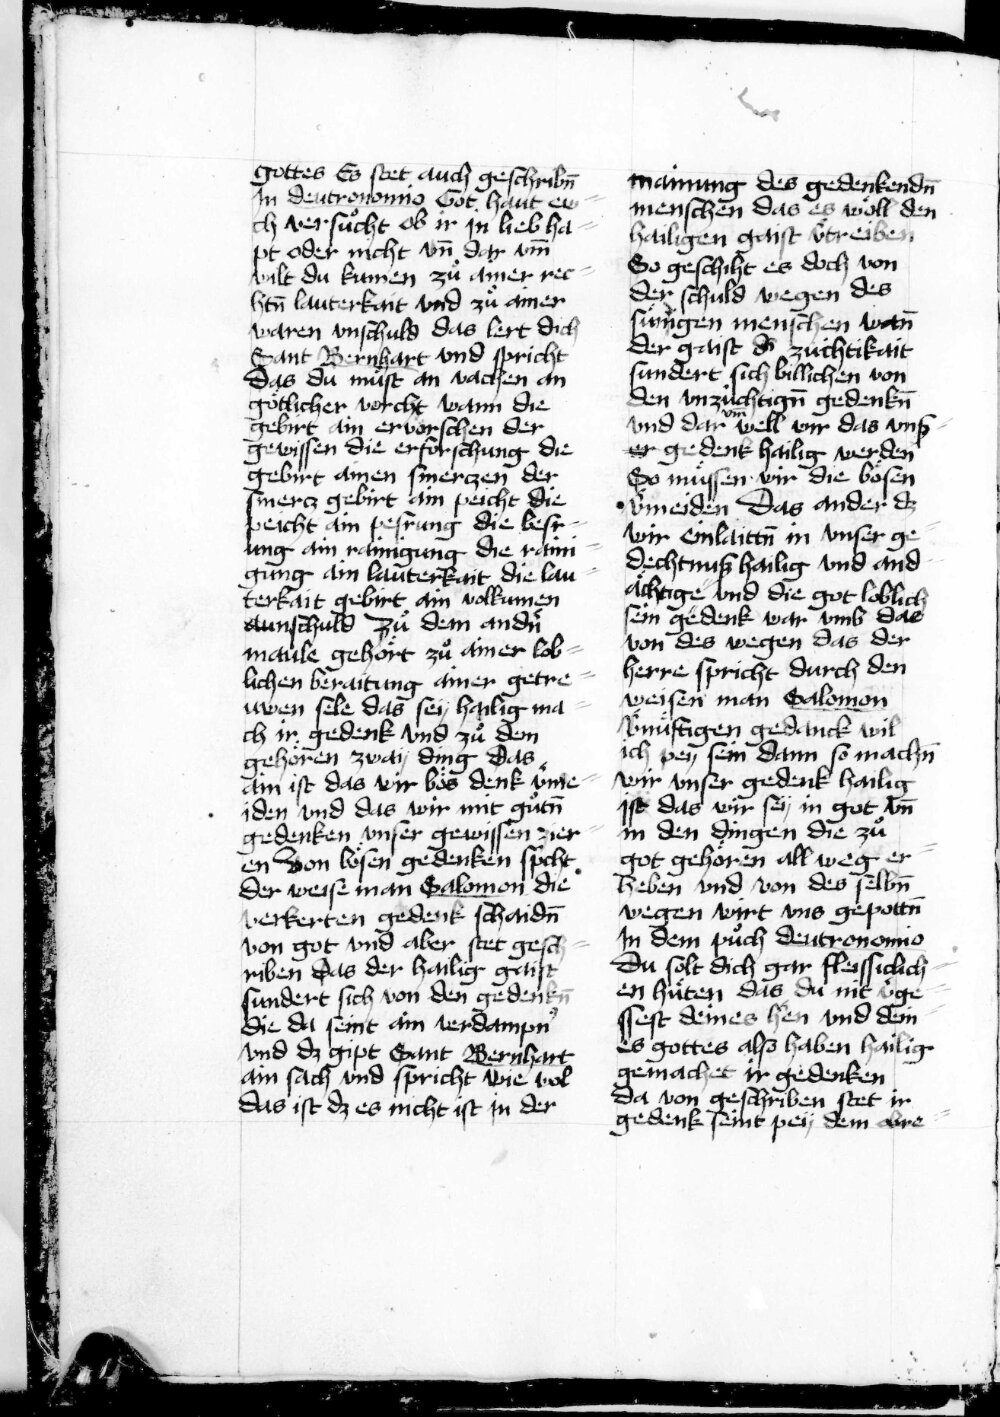 gottes Es stet auch geschribn̄
In deutronomio Got haut ew=
ch versuͦcht ob ir in lieb ha=
pt oder nicht vn̄ dar vm̄
wilt du kumen zuͦ ainer rec=
htn̄ lauterkait vnd zuͦ ainer
waren vnschuld das lert dich
Sant Bernhart vnd spricht
Das du muͤst an vachen an
goͤtlicher vorcht wann die
gebirt ain ervorschen der
gewissen die erforschung die
gebirt ainen smerczen der
smercz gebirt ain peicht die
peicht ain pesrung die besr=
ung ain rainigung die raini=
gung ain lauterkait die lau=
terkait gebirt ain volkumen
vnschuld Zuͦ dem andn̄
maule gehoͤrt zuͦ ainer lob=
lichen beraitung ainer getre=
uwen sele das seij hailig ma=
ch ir gedenk vnd zuͦ dem
gehoͤren zwaij ding Das
ain ist das wir boͤs denk v̄me=
iden vnd das wir mit guͦtn̄
gedenken vnser gewissen zier=
en Von boͤsen gedenken sp̄cht
der weise man Salomon die
verkerten gedenk schaidn̄
von got vnd aber stet gesch=
riben Das der hailig gaist
sundert sich von den gedenkn̄
die da seint ain verdampn̄
vnd dz gipt Sant Bernhart
ain sach vnd spricht wie wol
das ist dz es nicht ist in der
mainung des gedenkendn̄
menschen das es woͤll den
hailigen gaist v̄treiben
So geschiht es doch von
der schuld wegen des
suͤnigen menschen wan̄
der gaist d̄ zuchtikait
sundert sich billichen von
den vnzuͤchtign̄ gedenkn̄
vnd dar vm̄ well wir das vnß=
er gedenk hailig werden
So muͤssen wir die boͤsen
v̄meiden Das ander dz
wir einlaittn̄ in vnser ge=
dechtnuß hailig vnd and=
aͤchtige vnd die got loblich
sein gedenk war vmb das
von des wegen das der
herre spricht durch den
weisen man Salomon
v̄nuͤftigen gedanck wil
ich peij sein dann so machn̄
wir vnser gedenk hailig
ist das wir seij in got vn̄
in den dingen die zuͦ
got gehoͤren all weg er=
heben vnd von des selbn̄
wegen wirt vns gepottn̄
In dem puͦch deutronomio
Du solt dich gar fleissiclich=
en huͤten das du nit v̄ge=
ssest deines h̄en vnd dein=
es gottes also haben hailig
gemachet ir gedenken
da von geschriben stet ir
gedenk seint peij dem obre=